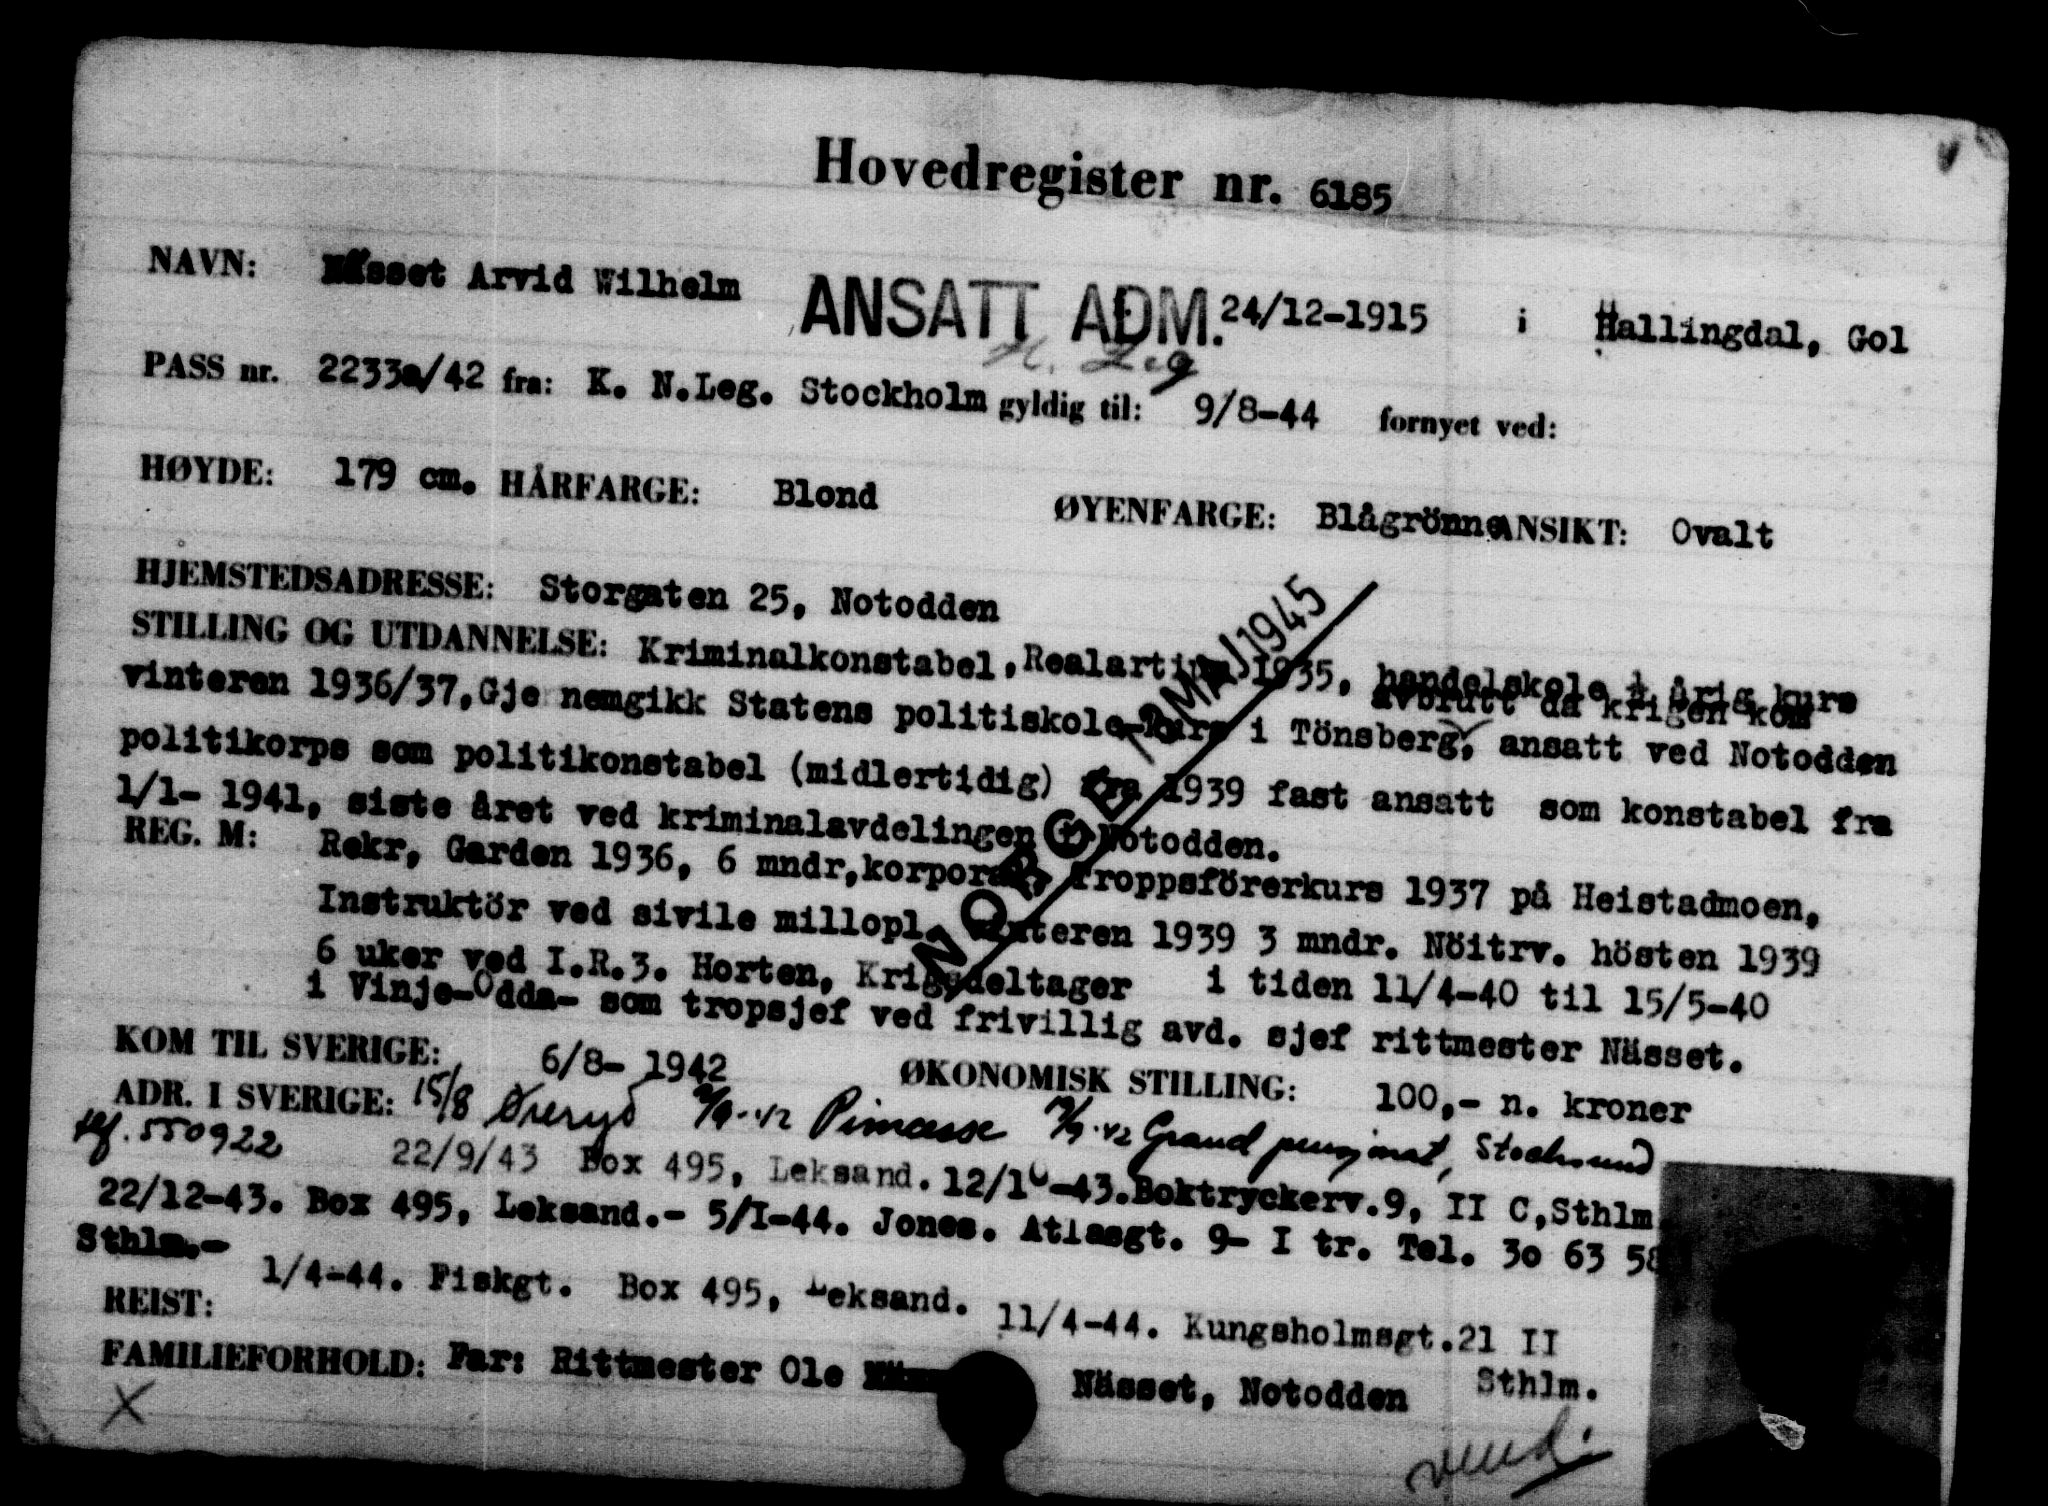 Hovedregister nr. 6185
NAVN: Nässet Arvid Wilhelm ANSATT ADM. 24/12-1915 i Hallingdal, Gol
N. Leg
PASS nr. 2233a/42 fra: K. N.Leg. Stockholm gyldig til: 9/8-44 fornyet ved:
HØYDE: 179 cm. HÅRFARGE: Blond ØYENFARGE: Blågrönne ANSIKT: Ovalt
HJEMSTEDSADRESSE: Storgaten 25, Notodden
STILLING OG UTDANNELSE: Kriminalkonstabel, Realartium 1935, handelskole 1 årig kurs
avbrutt da krigen kom
vinteren 1936/37, Gje nemgikk Statens politiskole-kurs i Tönsberg, ansatt ved Notodden
politikorps som politikonstabel (midlertidig) fra 1939 fast ansatt som konstabel fra
1/1- 1941, siste året ved kriminalavdelingen Notodden.
NORGE MAI 1945
REG. M: Rekr, Garden 1936, 6 mndr, korporal, Troppsförerkurs 1937 på Heistadmoen,
Instruktör ved sivile millopl. vinteren 1939 3 mndr. Nöitrv. hösten 1939
6 uker ved I.R.3. Horten, Krigsdeltager i tiden 11/4-40 til 15/5-40
i Vinje-Odda- som tropsjef ved frivillig avd. sjef rittmester Nässet.
KOM TIL SVERIGE: 6/8- 1942 ØKONOMISK STILLING: 100,- n. kroner
ADR. I SVERIGE: 15/8 Øreryd /9-42 Pimasse /9-42 Grand pensjonat, Stocksund
tlf. 550922 22/9/43 Box 495, Leksand. 12/10-43. Boktryckerv.9, II C, Sthlm
22/12-43. Box 495, Leksand.- 5/I-44. Jones. Atlasgt. 9- I tr. Tel. 30 63 58
Sthlm.- 1/4-44. Fiskgt. Box 495, Leksand. 11/4-44. Kungsholmsgt.21 II
Sthlm.
REIST:
FAMILIEFORHOLD: Far: Rittmester Ole Nässet, Notodden
X
vend.